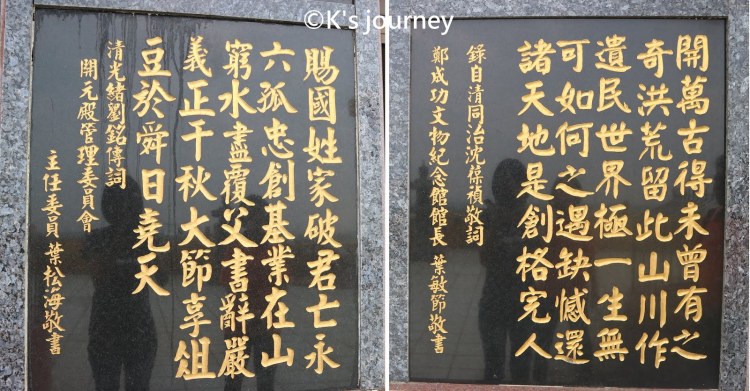 ©K's journey
賜國姓家破君亡永
矢孤忠創基業在山
窮水盡覆父書辭嚴
義正千秋大節享俎
豆於舜日堯天
清光緒劉銘傳詞
開元殿管理委員會
主任委員 葉松海敬書
開萬古得未曾有之
奇洪荒留此山川作
遺民世界極一生無
可如何之遇缺憾還
諸天地是創格完人
錄自清同治沈葆禎敬詞
鄭成功文物紀念館館長 葉敏節敬書